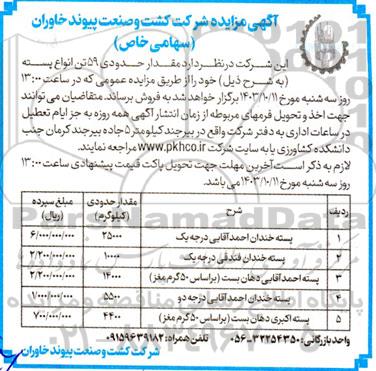 آگهی مزایده شرکت کشت و صنعت پیوند خاوران
(سهامی خاص)
این شرکت در نظر دارد مقدار حدودی ۵۹ تن انواع پسته
(به شرح ذیل) خود را از طریق مزایده عمومی که در ساعت ۱۳:۰۰
روز سه شنبه مورخ ۱۴۰۳/۱۰/۱۱ برگزار خواهد شد به فروش برساند. متقاضیان می توانند
جهت اخذ و تحویل فرمهای مربوطه از زمان انتشار آگهی همه روزه به جز ایام تعطیل
در ساعات اداری به دفتر شرکت واقع در بیرجند کیلومتر ۵ جاده بیرجند کرمان جنب
دانشکده کشاورزی یا به سایت شرکت www.pkhco.ir مراجعه نمایند.
لازم به ذکر است آخرین مهلت جهت تحویل پاکت قیمت پیشنهادی ساعت ۱۳:۰۰
روز سه شنبه مورخ ۱۴۰۳/۱۰/۱۱ می باشد.
ردیف شرح مقدار حدودی (کیلوگرم) مبلغ سپرده (ریال)
۱ پسته خندان احمدآقایی درجه یک ۲۵۰۰۰ ۶/۰۰۰/۰۰۰/۰۰۰
۲ پسته خندان فندقی درجه یک ۱۰۰۰۰ ۲/۲۰۰/۰۰۰/۰۰۰
۳ پسته احمدآقایی دهان بست (براساس ۵۰ گرم مغز) ۱۴۰۰۰ ۲/۲۰۰/۰۰۰/۰۰۰
۴ پسته خندان احمدآقایی درجه دو ۵۵۰۰ ۱/۰۰۰/۰۰۰/۰۰۰
۵ پسته اکبری دهان بست (براساس ۵۰ گرم مغز) ۴۴۰۰ ۷۰۰/۰۰۰/۰۰۰
واحد بازرگانی: ۳۲۲۵۴۳۵۰-۰۵۶ تلفن همراه: ۰۹۱۵۹۶۳۹۱۸۲
شرکت کشت و صنعت پیوند خاوران